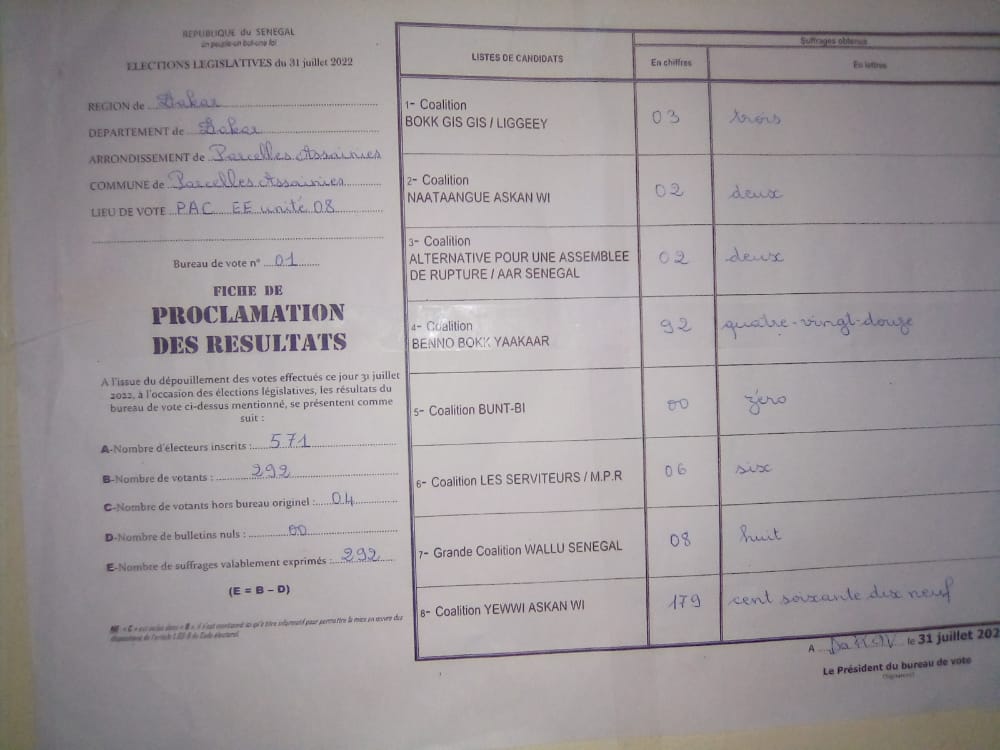 REPUBLIQUE du SENEGAL
Un peuple-un but-une foi
ELECTIONS LEGISLATIVES du 31 juillet 2022
REGION de Dakar
DEPARTEMENT de Dakar
ARRONDISSEMENT de Parcelles Assainies
COMMUNE de Parcelles Assainies
LIEU DE VOTE PAC EE unité 08
Bureau de vote n° 01
FICHE DE
PROCLAMATION
DES RESULTATS
A l'issue du dépouillement des votes effectués ce jour 31 juillet
2022, à l'occasion des élections législatives, les résultats du
bureau de vote ci-dessus mentionné, se présentent comme
suit :
A-Nombre d'électeurs inscrits : 571
B-Nombre de votants : 292
C-Nombre de votants hors bureau originel : 04
D-Nombre de bulletins nuls : 00
E-Nombre de suffrages valablement exprimés : 292
(E = B – D)
LISTES DE CANDIDATS
Suffrages obtenus
En chiffres
En lettres
1- Coalition
BOKK GIS GIS / LIGGEEY
03
trois
2- Coalition
NAATAANGUE ASKAN WI
02
deux
3- Coalition
ALTERNATIVE POUR UNE ASSEMBLEE
DE RUPTURE / AAR SENEGAL
02
deux
4- Coalition
BENNO BOKK YAAKAAR
92
quatre-vingt-douze
5- Coalition BUNT-BI
00
zéro
6- Coalition LES SERVITEURS / M.P.R
06
six
7- Grande Coalition WALLU SENEGAL
08
huit
8- Coalition YEWWI ASKAN WI
179
cent soixante dix neuf
A Dakar le 31 juillet 202
Le Président du bureau de vote
(Signature)